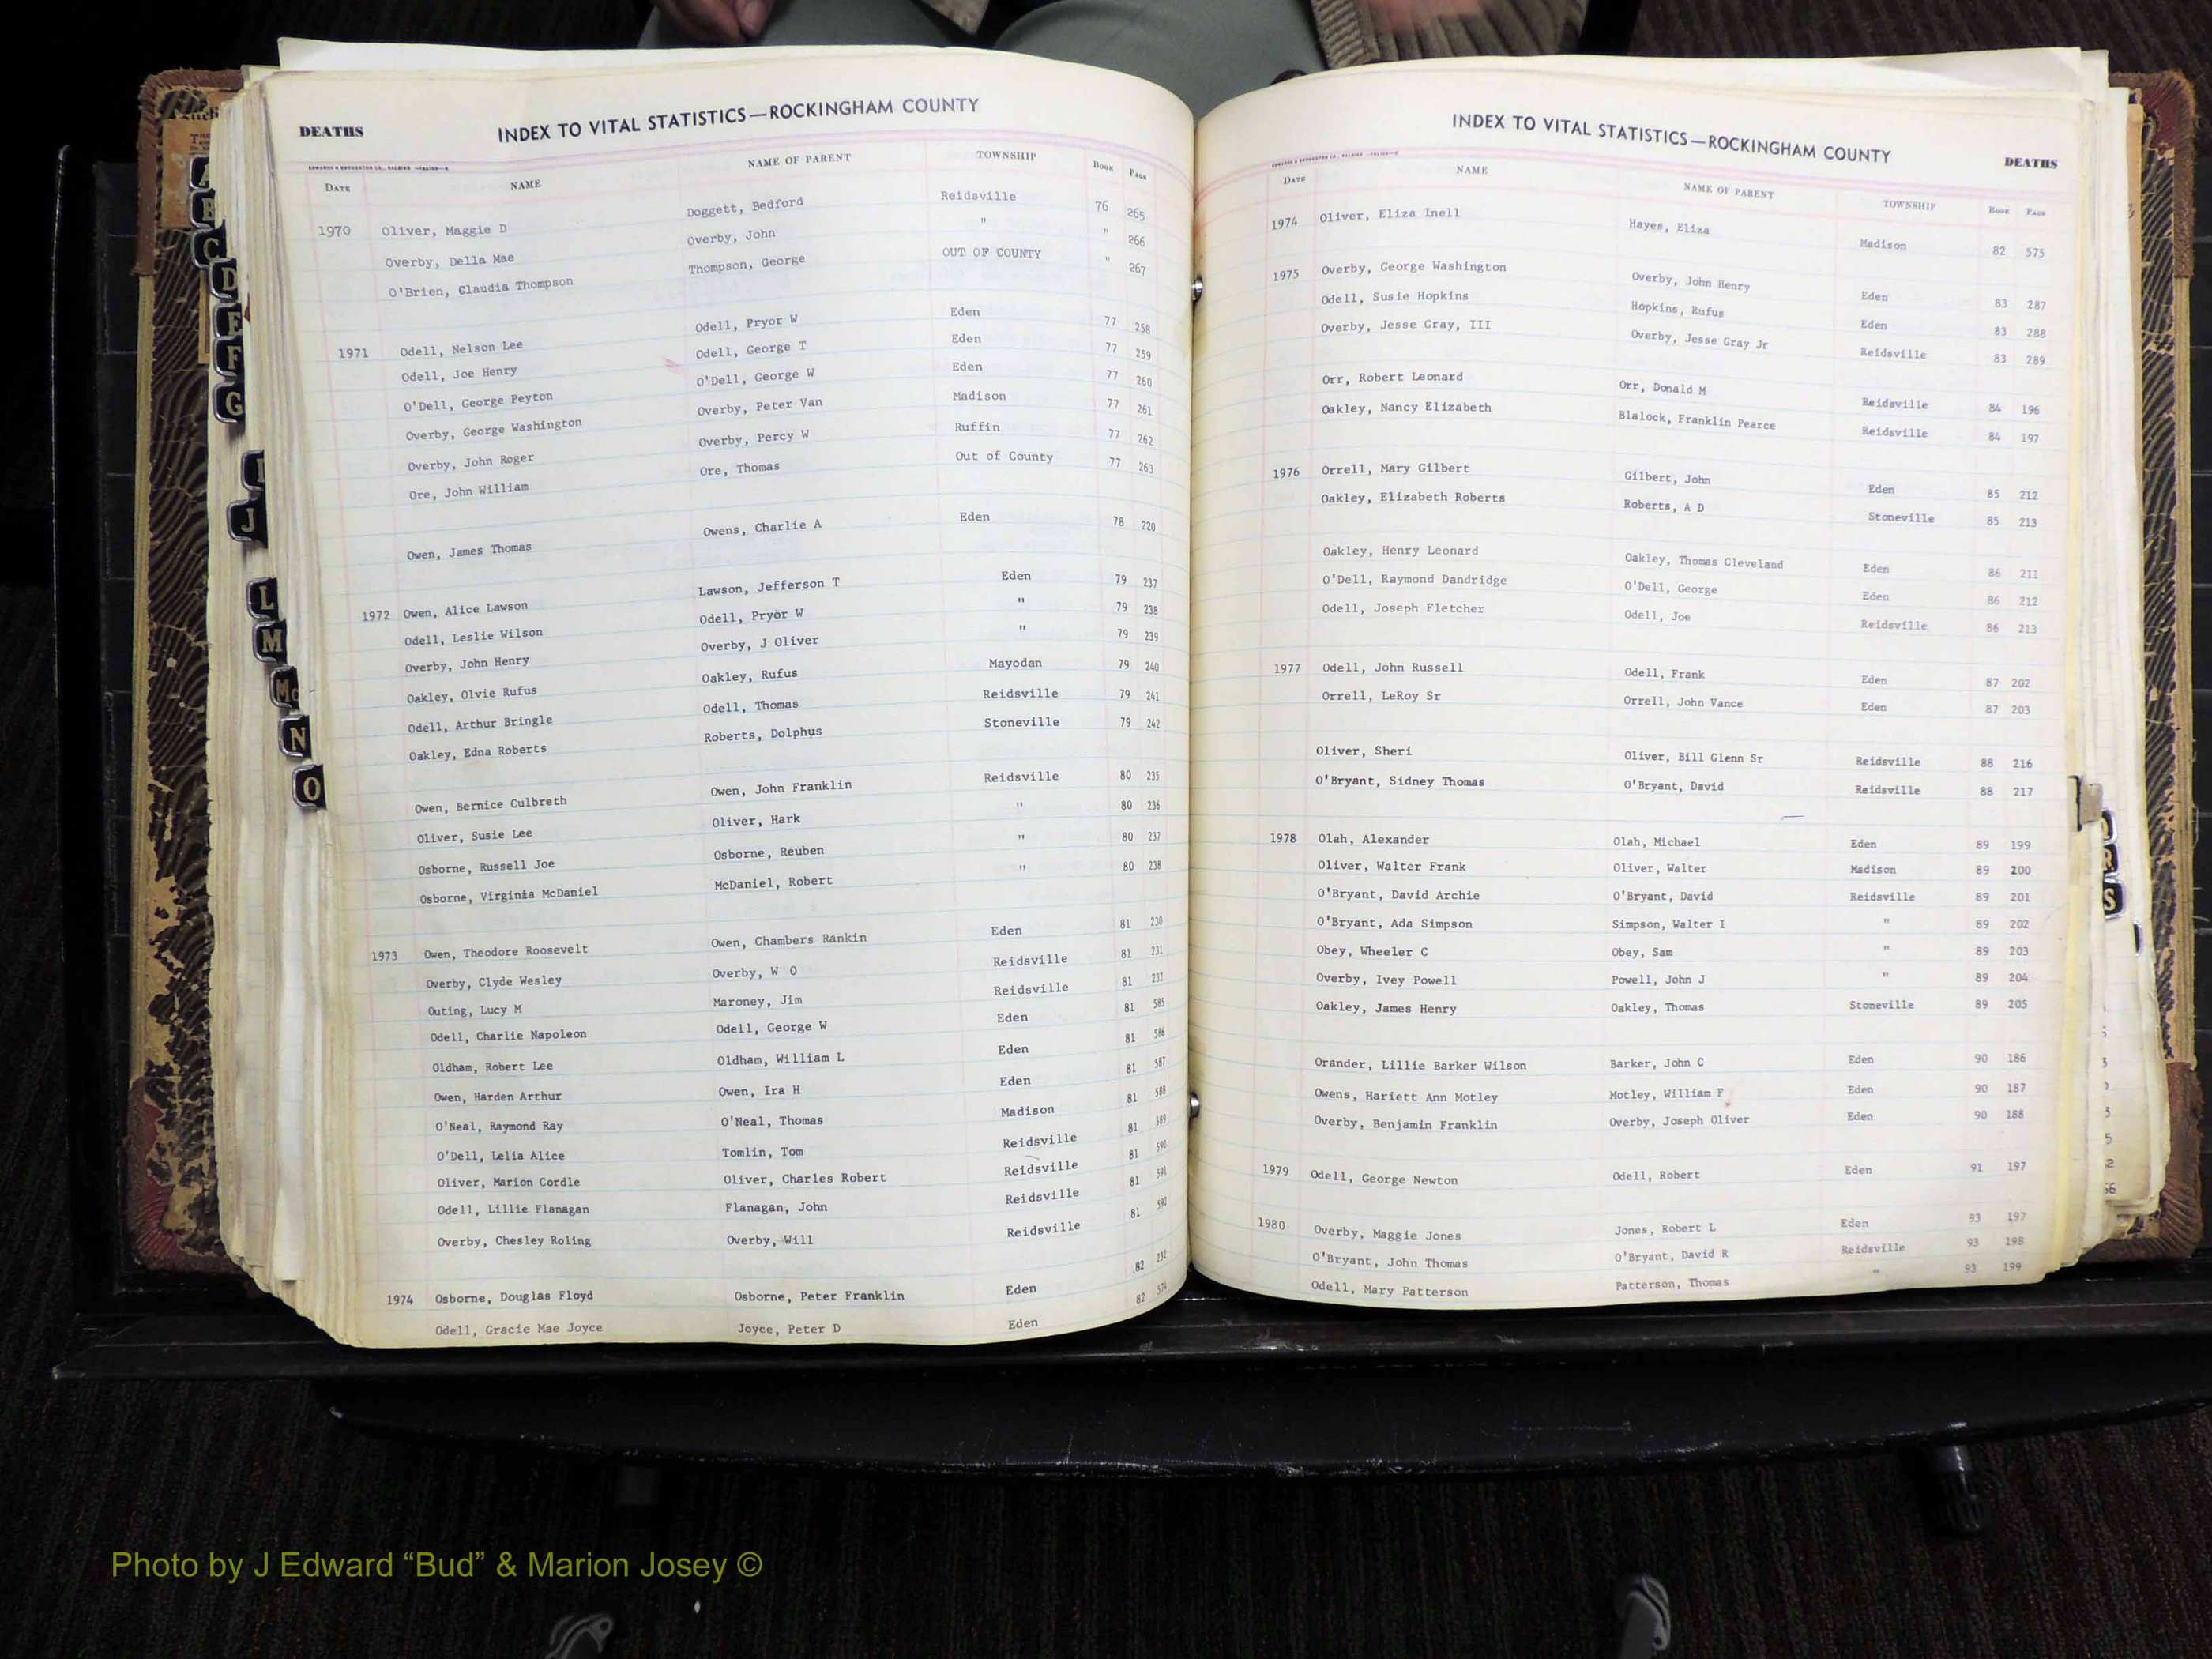 DEATHS
INDEX TO VITAL STATISTICS—ROCKINGHAM COUNTY
DATE NAME NAME OF PARENT TOWNSHIP BOOK PAGE
1970 Oliver, Maggie D Doggett, Bedford Reidsville 76 265
Overby, Della Mae Overby, John " " 266
O'Brien, Claudia Thompson Thompson, George OUT OF COUNTY " 267
1971 Odell, Nelson Lee Odell, Pryor W Eden 77 258
Odell, Joe Henry Odell, George T Eden 77 259
O'Dell, George Peyton O'Dell, George W Eden 77 260
Overby, George Washington Overby, Peter Van Madison 77 261
Overby, John Roger Overby, Percy W Ruffin 77 262
Ore, John William Ore, Thomas Out of County 77 263
Owen, James Thomas Owens, Charlie A Eden 78 220
1972 Owen, Alice Lawson Lawson, Jefferson T Eden 79 237
Odell, Leslie Wilson Odell, Pryor W " 79 238
Overby, John Henry Overby, J Oliver " 79 239
Oakley, Olvie Rufus Oakley, Rufus Mayodan 79 240
Odell, Arthur Bringle Odell, Thomas Reidsville 79 241
Oakley, Edna Roberts Roberts, Dolphus Stoneville 79 242
Owen, Bernice Culbreth Owen, John Franklin Reidsville 80 235
Oliver, Susie Lee Oliver, Hark " 80 236
Osborne, Russell Joe Osborne, Reuben " 80 237
Osborne, Virginia McDaniel McDaniel, Robert " 80 238
1973 Owen, Theodore Roosevelt Owen, Chambers Rankin Eden 81 230
Overby, Clyde Wesley Overby, W O Reidsville 81 231
Outing, Lucy M Maroney, Jim Reidsville 81 232
Odell, Charlie Napoleon Odell, George W Eden 81 585
Oldham, Robert Lee Oldham, William L Eden 81 586
Owen, Harden Arthur Owen, Ira H Eden 81 587
O'Neal, Raymond Ray O'Neal, Thomas Madison 81 588
O'Dell, Lelia Alice Tomlin, Tom Reidsville 81 589
Oliver, Marion Cordle Oliver, Charles Robert Reidsville 81 590
Odell, Lillie Flanagan Flanagan, John Reidsville 81 591
Overby, Chesley Roling Overby, Will Reidsville 81 592
1974 Osborne, Douglas Floyd Osborne, Peter Franklin Eden 82 232
Odell, Gracie Mae Joyce Joyce, Peter D Eden 82 574
INDEX TO VITAL STATISTICS—ROCKINGHAM COUNTY
DEATHS
DATE NAME NAME OF PARENT TOWNSHIP BOOK PAGE
1974 Oliver, Eliza Inell Hayes, Eliza Madison 82 575
1975 Overby, George Washington Overby, John Henry Eden 83 287
Odell, Susie Hopkins Hopkins, Rufus Eden 83 288
Overby, Jesse Gray, III Overby, Jesse Gray Jr Reidsville 83 289
Orr, Robert Leonard Orr, Donald M Reidsville 84 196
Oakley, Nancy Elizabeth Blalock, Franklin Pearce Reidsville 84 197
1976 Orrell, Mary Gilbert Gilbert, John Eden 85 212
Oakley, Elizabeth Roberts Roberts, A D Stoneville 85 213
Oakley, Henry Leonard Oakley, Thomas Cleveland Eden 86 211
O'Dell, Raymond Dandridge O'Dell, George Eden 86 212
Odell, Joseph Fletcher Odell, Joe Reidsville 86 213
1977 Odell, John Russell Odell, Frank Eden 87 202
Orrell, LeRoy Sr Orrell, John Vance Eden 87 203
Oliver, Sheri Oliver, Bill Glenn Sr Reidsville 88 216
O'Bryant, Sidney Thomas O'Bryant, David Reidsville 88 217
1978 Olah, Alexander Olah, Michael Eden 89 199
Oliver, Walter Frank Oliver, Walter Madison 89 200
O'Bryant, David Archie O'Bryant, David Reidsville 89 201
O'Bryant, Ada Simpson Simpson, Walter I " 89 202
Obey, Wheeler C Obey, Sam " 89 203
Overby, Ivey Powell Powell, John J " 89 204
Oakley, James Henry Oakley, Thomas Stoneville 89 205
Orander, Lillie Barker Wilson Barker, John C Eden 90 186
Owens, Hariett Ann Motley Motley, William F Eden 90 187
Overby, Benjamin Franklin Overby, Joseph Oliver Eden 90 188
1979 Odell, George Newton Odell, Robert Eden 91 197
1980 Overby, Maggie Jones Jones, Robert L Eden 93 197
O'Bryant, John Thomas O'Bryant, David R Reidsville 93 198
Odell, Mary Patterson Patterson, Thomas " 93 199
A
B
C
D
E
F
G
I
J
L
M
Mc
N
O
R
S
Photo by J Edward “Bud” & Marion Josey ©